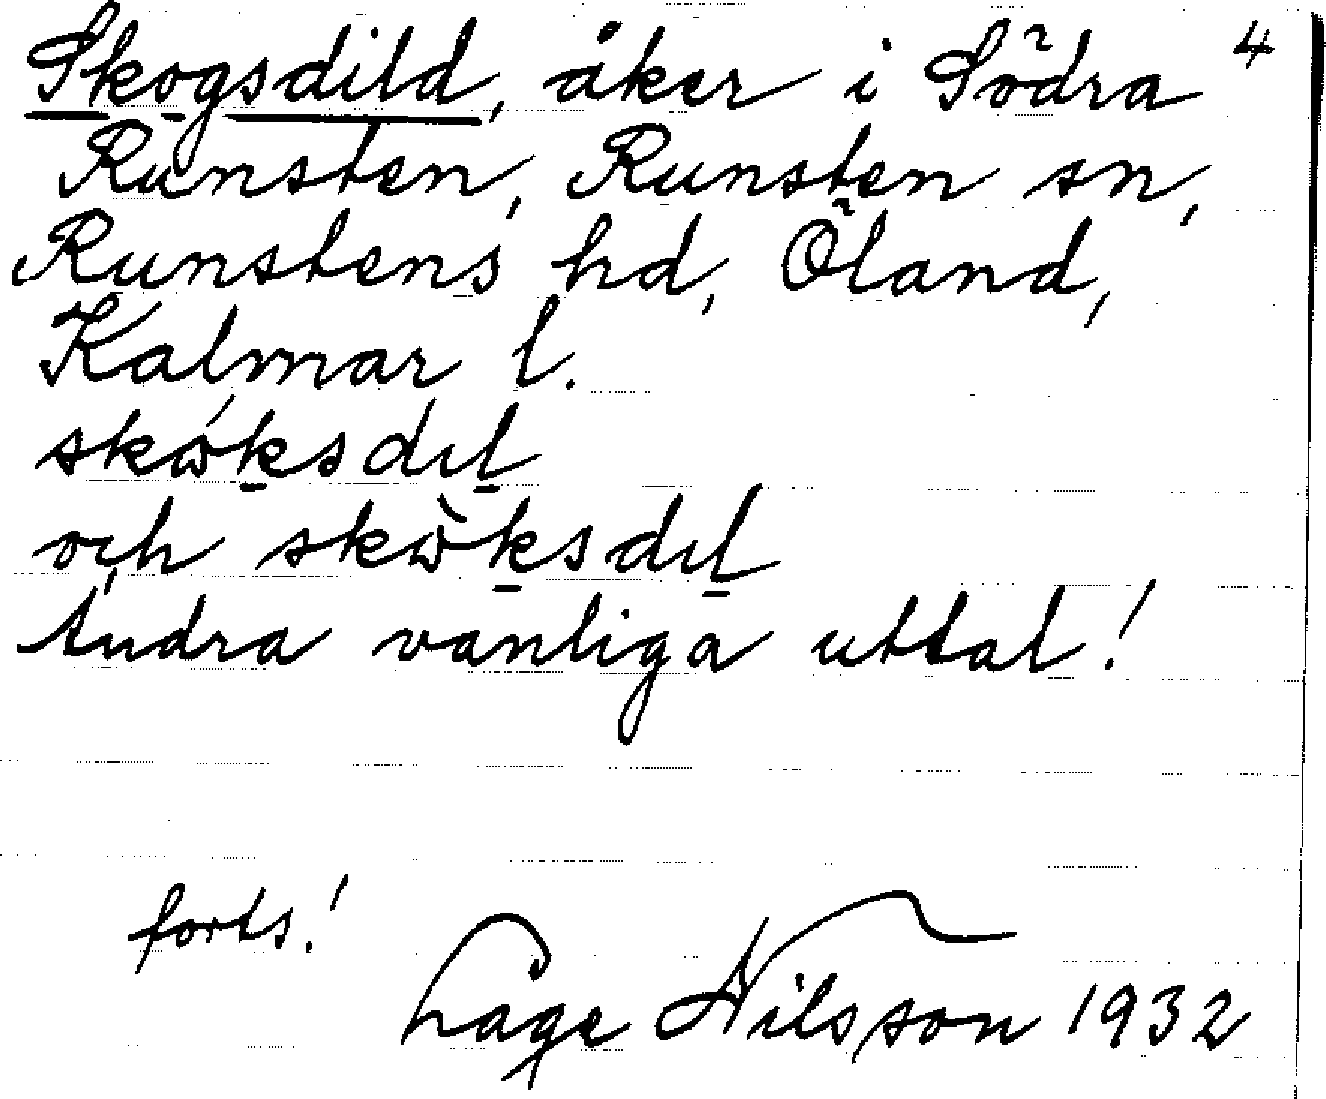 Skogsdild, åker i Södra 4
Runsten, Runsten sn,
Runstens hd, Öland,
Kalmar l.
och
båda vanliga uttal!
forts!
Lage Nilsson 1932